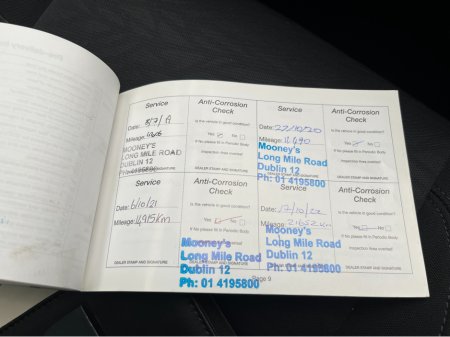 Service
Anti-Corrosion
Check
Date: 3/7/19
Is the vehicle in good condition?
Yes No
If No please fill in Periodic Body
Inspection Area overleaf
MOONEY'S
LONG MILE ROAD
DUBLIN 12
DEALER STAMP AND SIGNATURE
Service
Anti-Corrosion
Check
Date: 22/10/20
Is the vehicle in good condition?
Mileage: 11490
Yes No
If No please fill in Periodic Body
Inspection Area overleaf
Mooney's
Long Mile Road
Dublin 12
Ph: 01 4195800
DEALER STAMP AND SIGNATURE
Service
Anti-Corrosion
Check
Date: 6/10/21
Is the vehicle in good condition?
Mileage: 14915km
Yes No
If No please fill in Periodic Body
Inspection Area overleaf
Mooney's
Long Mile Road
Dublin 12
Ph: 01 4195800
DEALER STAMP AND SIGNATURE
Service
Anti-Corrosion
Check
Date: 17/10/22
Is the vehicle in good condition?
Mileage:
Yes No
If No please fill in Periodic Body
Inspection Area overleaf
Mooney's
Long Mile Road
Dublin 12
Ph: 01 4195800
DEALER STAMP AND SIGNATURE
Page 9